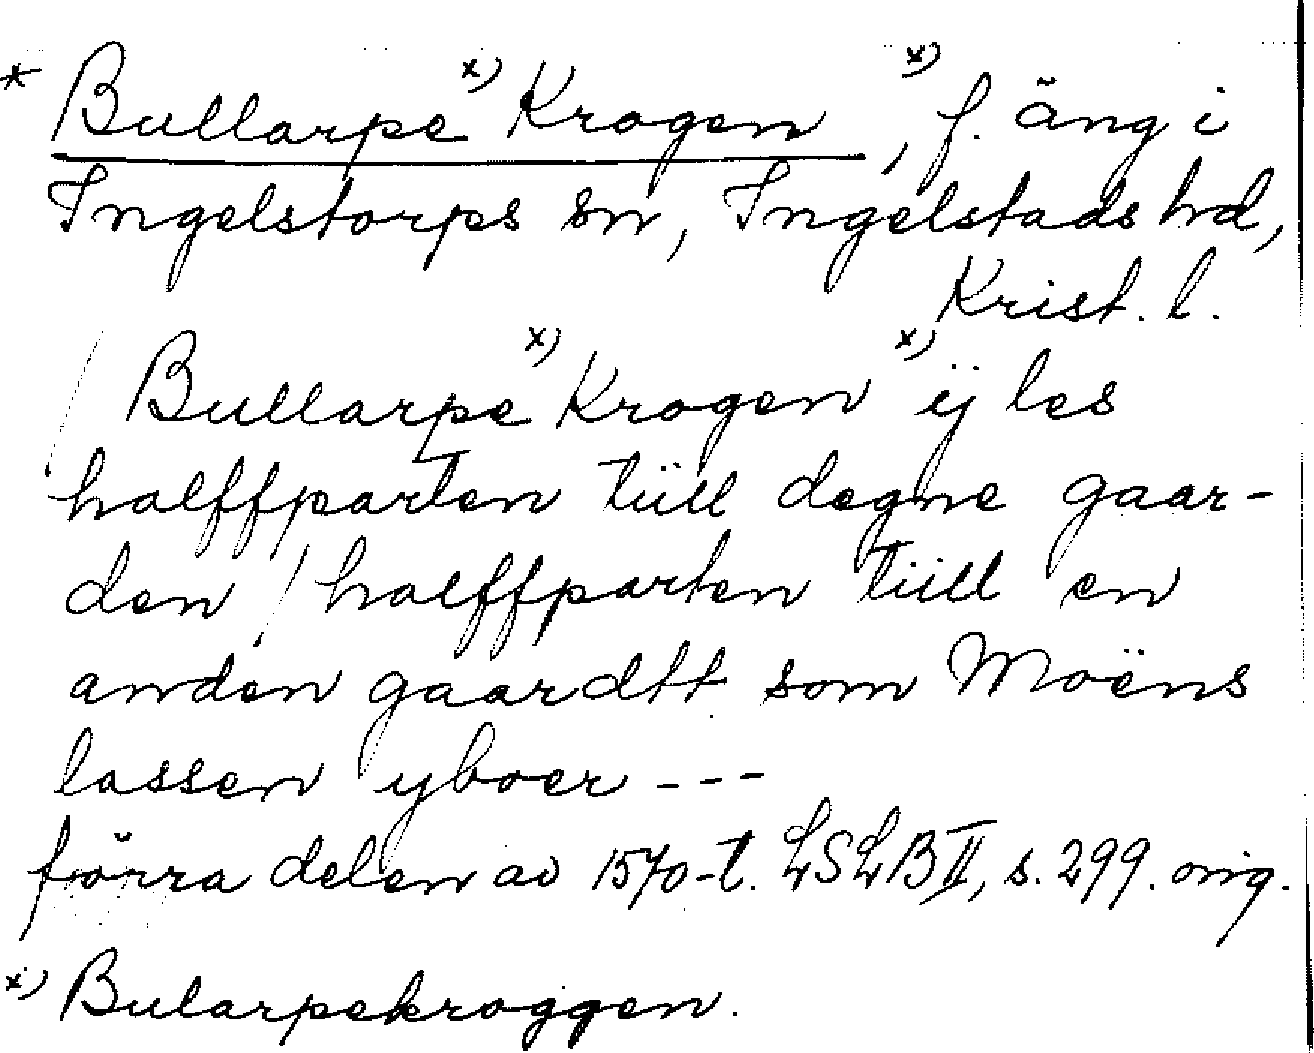 * Bullarpe x) Krogen x), f. äng i
Ingelstorps sn, Ingelstads hd,
Krist. l.
/ Bullarpe x) Krogen x) ÿ les
halffparten tüll degne gaar-
den / halffparten tüll en
anden gaardtt som Moëns
lassen yboer ---
förra delen av 1570-t. LSLB II, s. 299. orig.
x) Bularpekroggen.